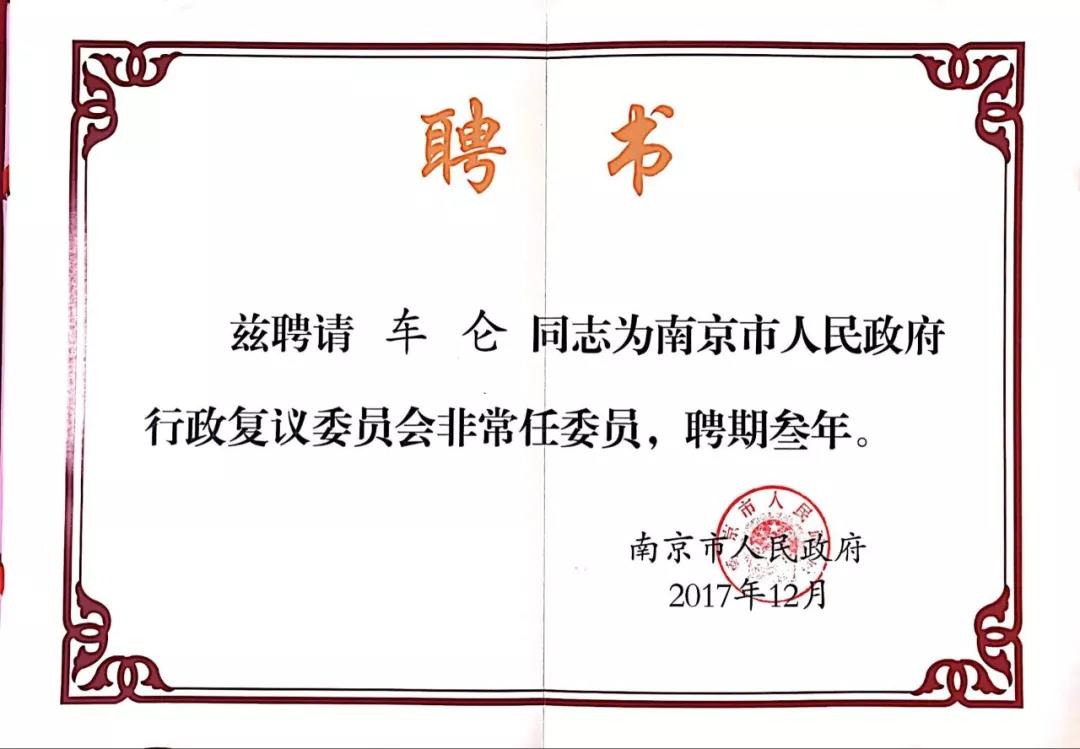 聘书
兹聘请 车仑 同志为南京市人民政府
行政复议委员会非常任委员，聘期叁年。
南京市人民政府
2017年12月